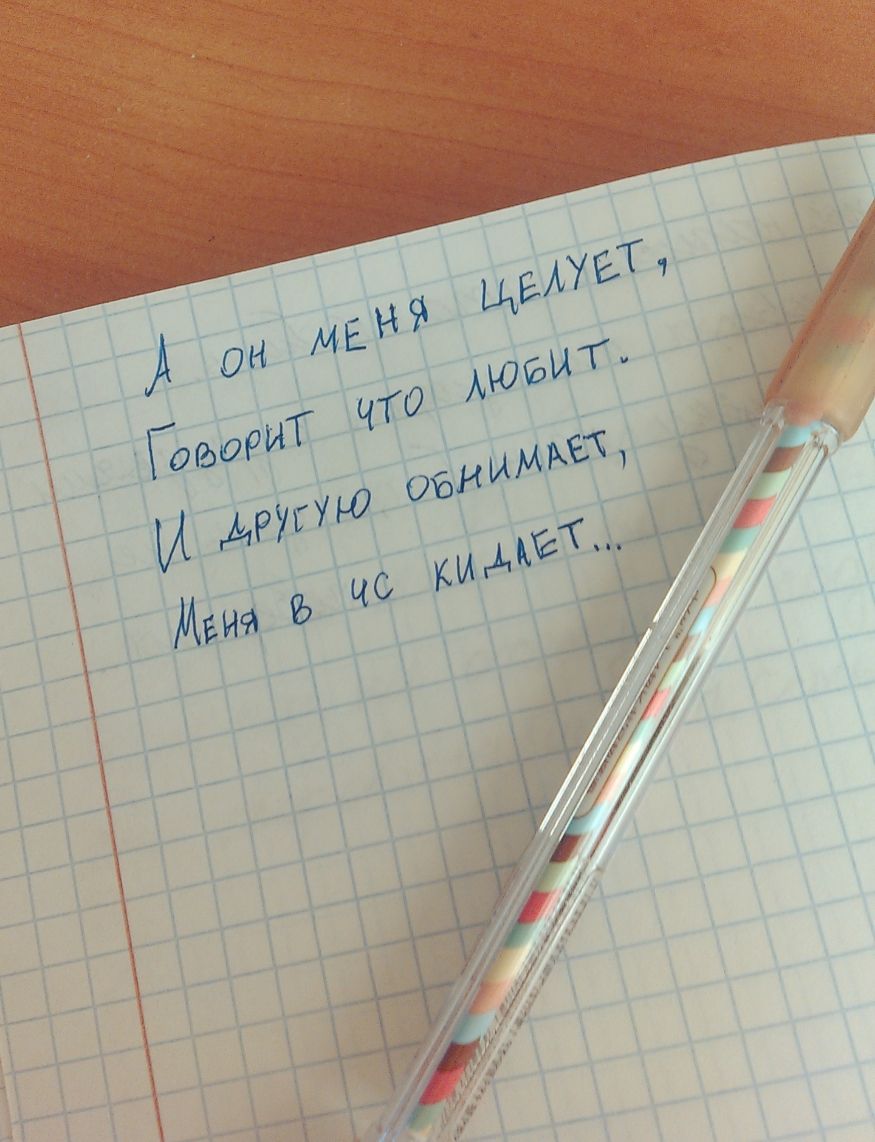 А он меня целует,
Говорит что любит.
И другую обнимает,
Меня в чс кидает...